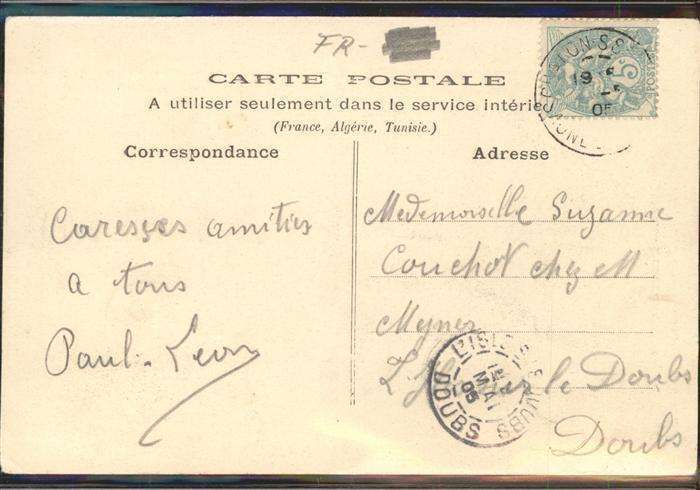 FR-
CARTE POSTALE
A utiliser seulement dans le service intérieur
(France, Algérie, Tunisie.)
Correspondance
Adresse
Caresses amitiés
a tous
Paul. Leon
Medemoiselle Suzanne
Couchot chez M
Meyner
L'Isle sur le Doubs
Doubs
POSTES
5
19
05
L'ISLE S. LE DOUBS
MAI
05
DOUBS